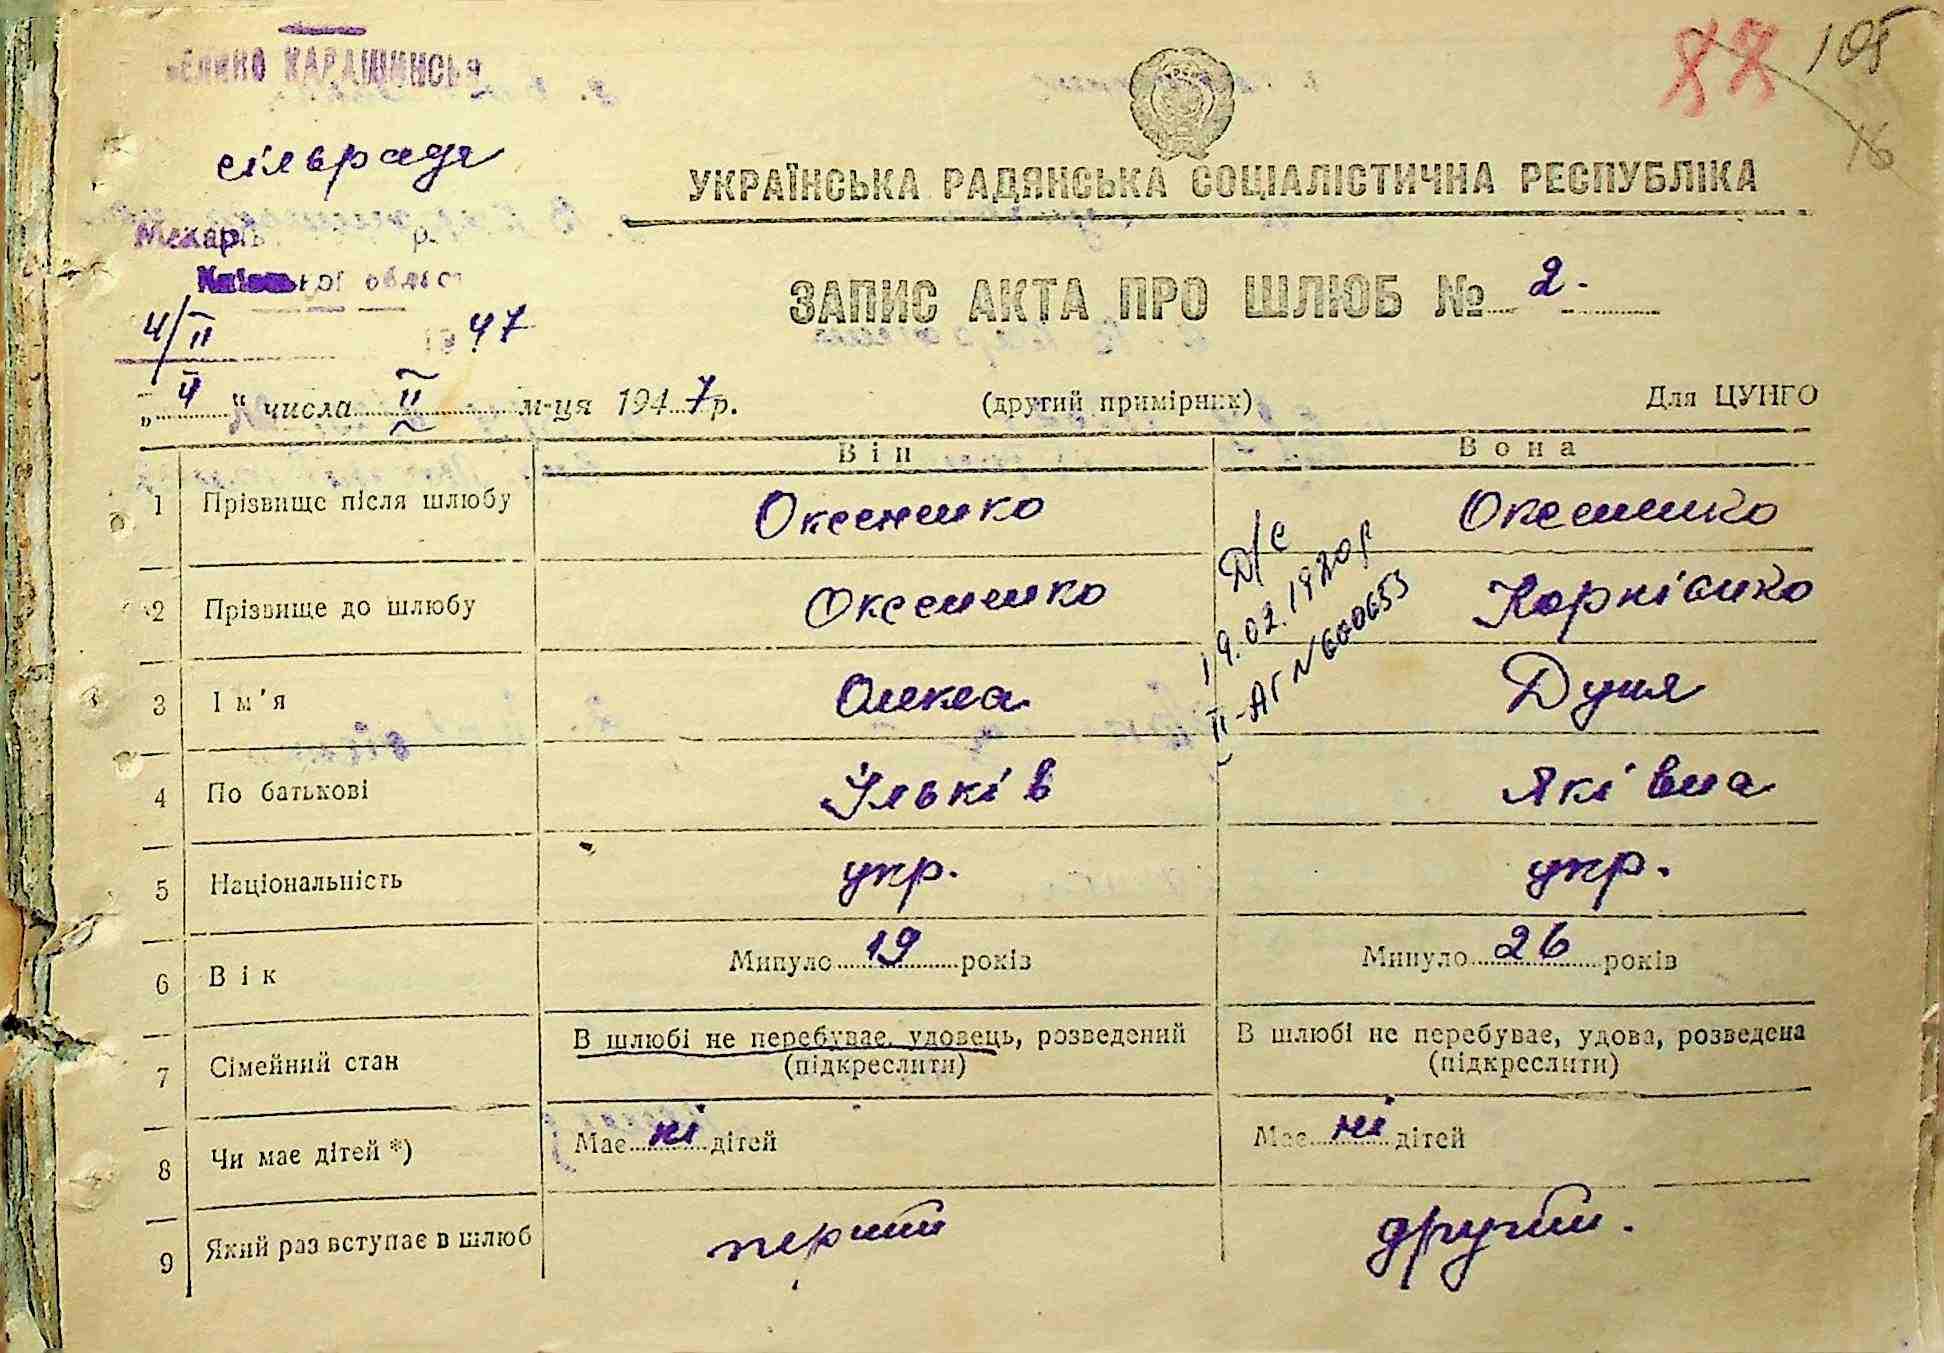 ВЕЛИКО КАРАШИНСЬК
сільрада
Макарів р.
Київської област
4/II 1947
„ 4 “ числа II м-ця 1947 р.
88 105
16
УКРАЇНСЬКА РАДЯНСЬКА СОЦІАЛІСТИЧНА РЕСПУБЛІКА
ЗАПИС АКТА ПРО ШЛЮБ № 2.
(другий примірник) Для ЦУНГО
Він Вона
1 Прізвище після шлюбу Оксененко Оксененко
2 Прізвище до шлюбу Оксененко Корнієнко
Д/С
19.02.1920р
II-АГ № 600653
3 Ім’я Олекса Дуня
4 По батькові Ільків Яківна
5 Національність укр. укр.
6 Вік Минуло 19 років Минуло 26 років
7 Сімейний стан В шлюбі не перебуває, удовець, розведений В шлюбі не перебуває, удова, розведена
(підкреслити) (підкреслити)
8 Чи має дітей *) Має ні дітей Має ні дітей
9 Який раз вступає в шлюб перший другий.